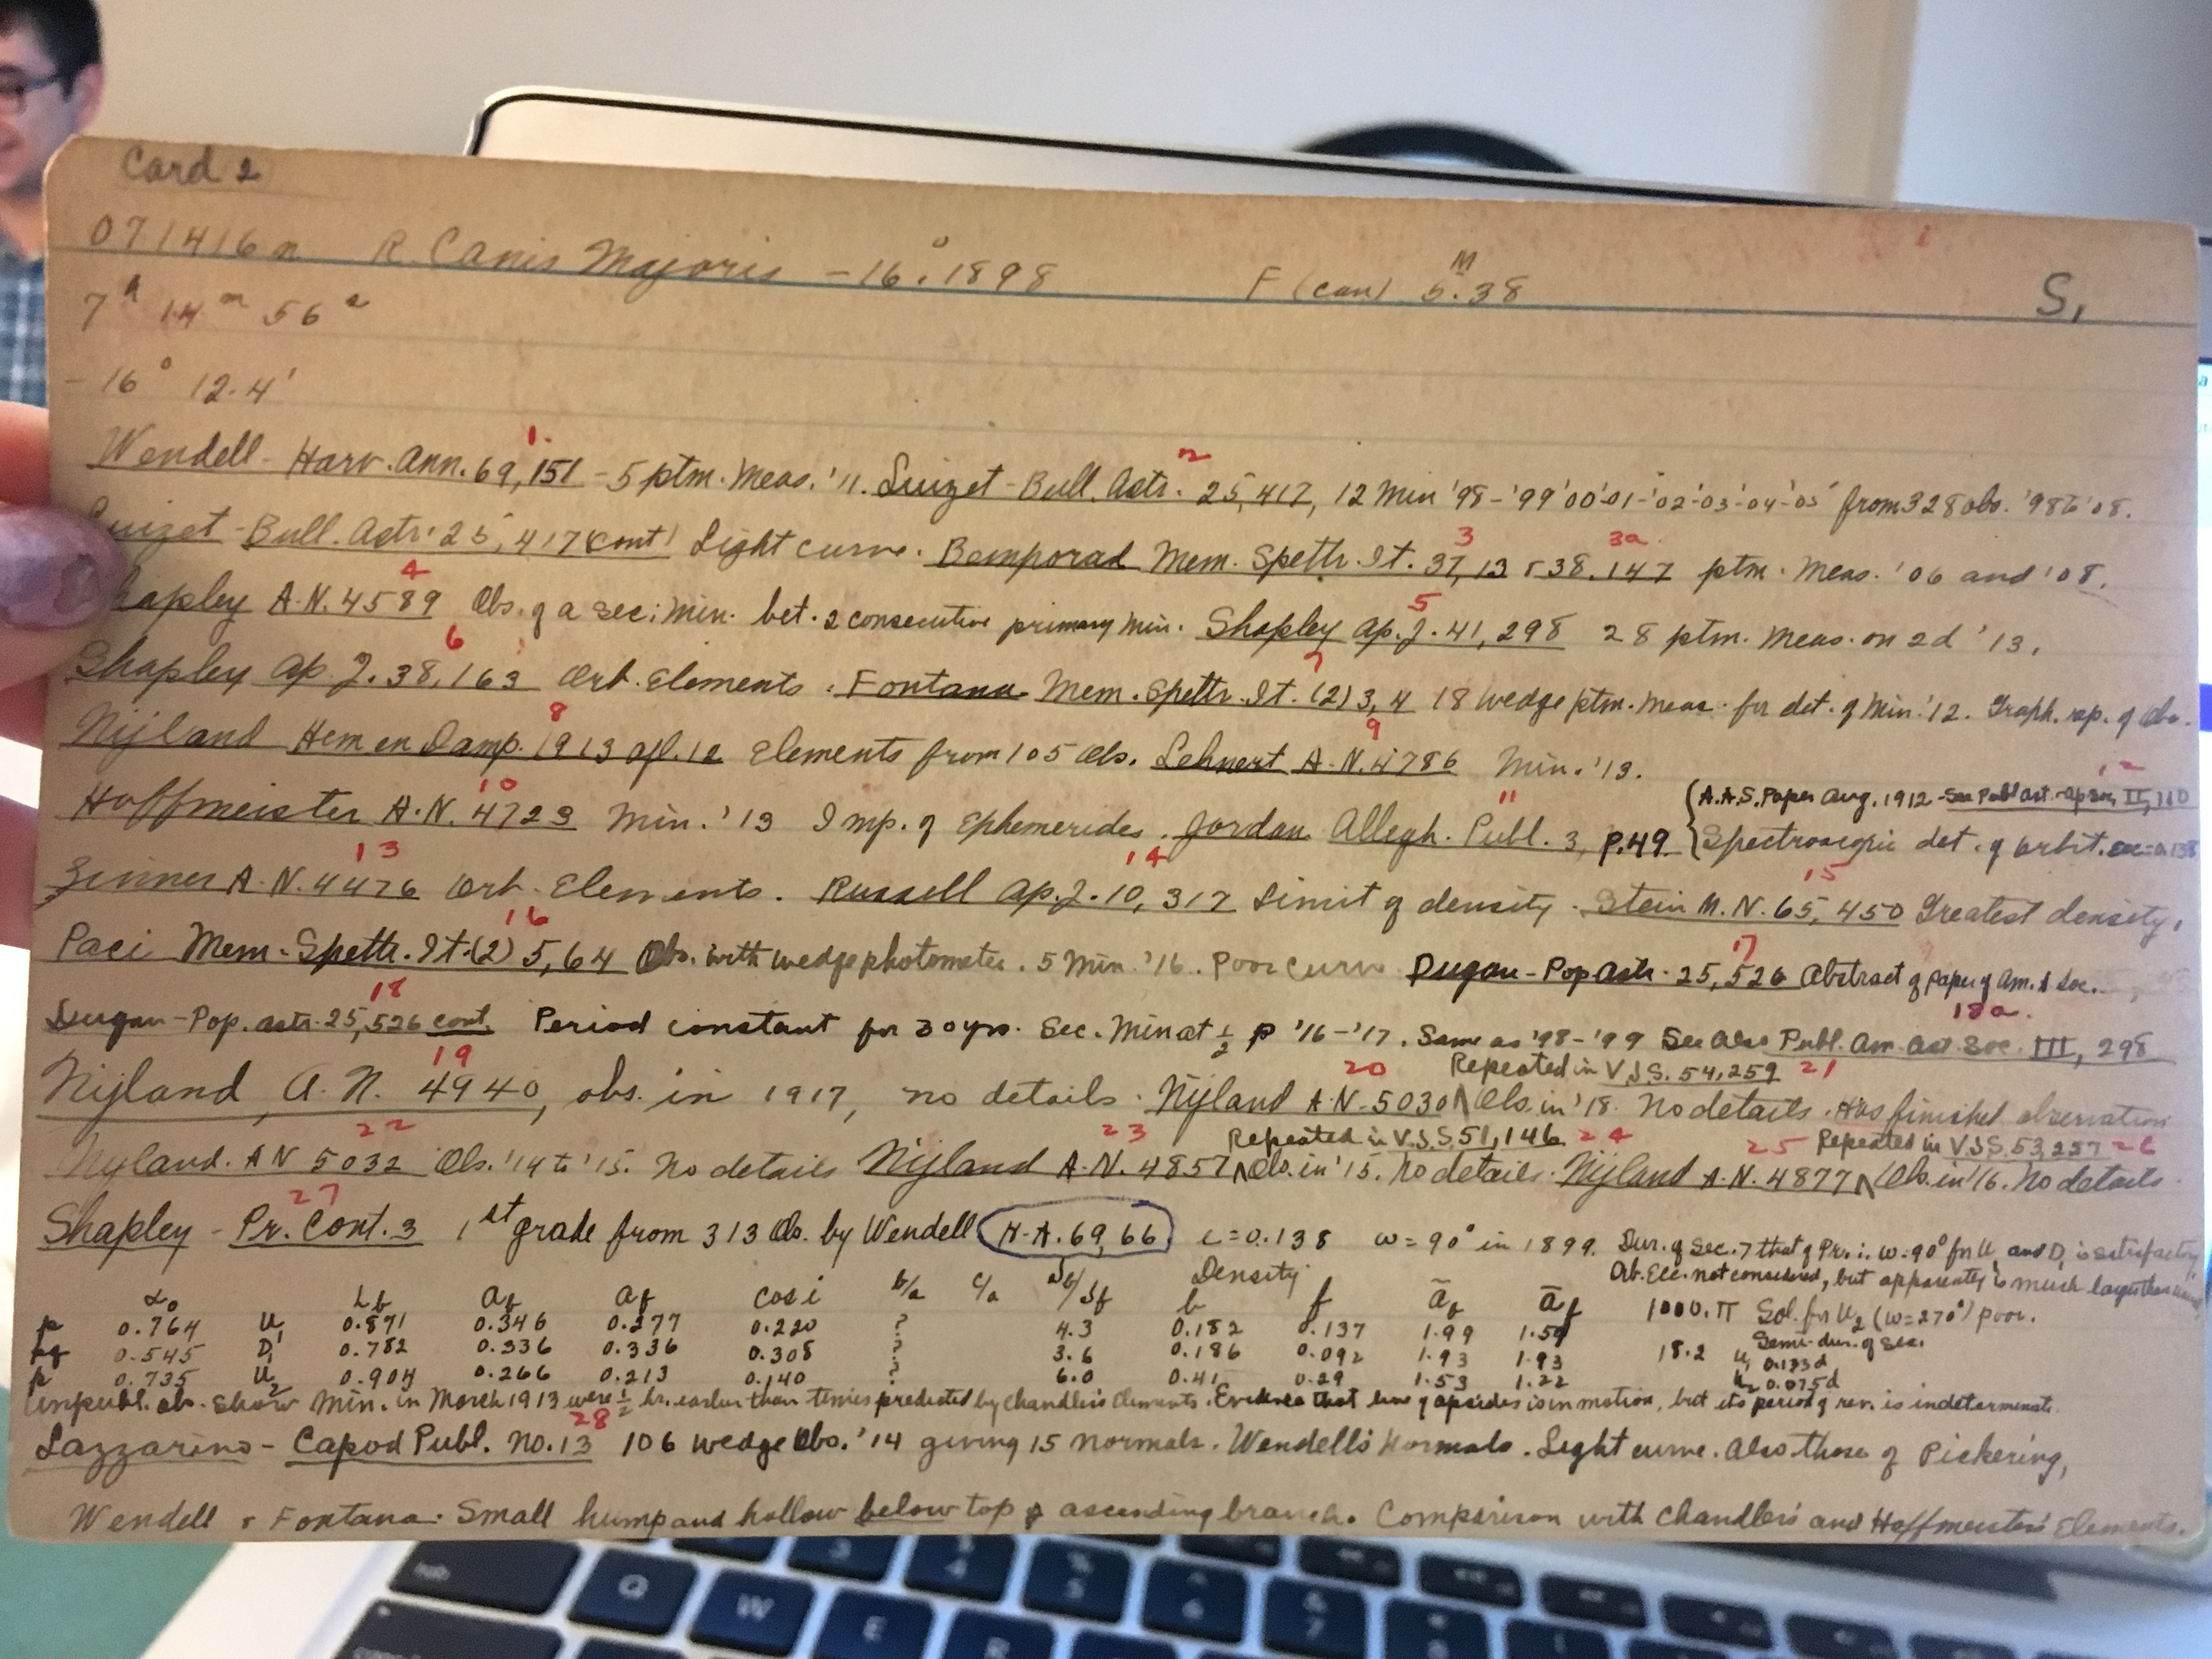 Card 2
071416n R. Canis Majoris -16°.1898 F (can) 5.38 M S,
7h 14m 56s
-16° 12.4'
1. 2
Wendell - Harv. Ann. 69, 151 - 5 ptm. Meas. '11. Luizet - Bull. Astr. 25, 417, 12 Min '98-'99'00'01-'02-'03-'04-'05 from 328 obs. '98 to '08.
3 3a
Luizet - Bull. Astr. 25, 417 (cont) Light curve. Bemporad Mem. Spettr. It. 37, 13 & 38, 147 ptm. Meas. '06 and '08.
4 5
Shapley A.N. 4589 Obs. of a sec. min. bet. 2 consecutive primary min. Shapley Ap. J. 41, 298 28 ptm. Meas. on 2d '13.
6 7
Shapley Ap. J. 38, 163 Orb. Elements. Fontana Mem. Spettr. It. (2) 3, 4 18 wedge ptm. meas. for det. of Min. '12. Graph. rep. of Obs.
8 9
Nijland Hem en Damp. 1913 afl. 12 Elements from 105 Obs. Lehnert A.N. 4786 Min. '13.
10 11 12
Hoffmeister A.N. 4723 Min. '13 Imp. of Ephemerides. Jordan Allegh. Publ. 3, P.49 {A.A.S. Paper Aug. 1912 - See Publ Ast. II,
Spectroscopic det. of orbit.
13 14 15
Zinner A.N. 4476 Orb. Elements. Russell Ap. J. 10, 317 Limit of density. Stein M.N. 65, 450 Greatest density.
16 17
Paci Mem. Spettr. It. (2) 5, 64 Obs. with wedge photometer. 5 Min. '16. Poor curve Dugan - Pop Astr. 25, 526 Abstract of paper of Am. A Soc.
18 18a.
Dugan - Pop. Astr. 25, 526 cont. Period constant for 30 yrs. Sec. Min at ½ P '16-'17. Same as '98-'99 See also Publ. Am. Ast. Soc. III, 298
19 20 Repeated in V.J.S. 54, 259 21
Nijland, A.N. 4940, obs. in 1917, no details. Nijland A.N. 5030 Obs. in '18. No details. Has finished observation
22 23 Repeated in V.J.S. 51, 146 24 25 Repeated in V.J.S. 53, 257 26
Nijland. A N 5032 Obs. '14 to '15. No details Nijland A.N. 4857 Obs. in '15. No details. Nijland A.N. 4877 Obs. in '16. No details.
27
Shapley - Pr. Cont. 3 1st grade from 313 Obs. by Wendell H.A. 69, 66 e=0.138 ω=90° in 1899. Dur. of Sec. 7 that of Pr. i. ω=90° for U, and D, is satisfactory
Orb. Ele. not considered, but apparently is much larger than
Density
α₀ Lb ab af cos i b/a c/a Jb/Jf b f āb āf
p 0.764 U₁ 0.891 0.346 0.277 0.220 ? 4.3 0.182 0.137 1.99 1.59 1000.π Sol. for U₂ (ω=270°) poor.
0.545 D₁ 0.782 0.336 0.336 0.308 ? 3.6 0.186 0.092 1.93 1.93 18.2 Semi-dur. of sec.
U₁ 0.133d
p 0.735 U₂ 0.904 0.266 0.213 0.140 ? 6.0 0.41 0.29 1.53 1.22 U₂ 0.075d
Unpubl. ob. show Min. in March 1913 were ½ hr. earlier than times predicted by Chandler's Elements. Evidence that line of apsides is in motion, but its period of rev. is indeterminate.
28
Lazzarino - Capod Publ. No. 13 106 wedge Obs. '14 giving 15 normals. Wendell's Normals. Light curve. Also those of Pickering,
Wendell & Fontana. Small hump and hollow below top of ascending branch. Comparison with Chandler's and Hoffmeister's Elements.
Q W E R